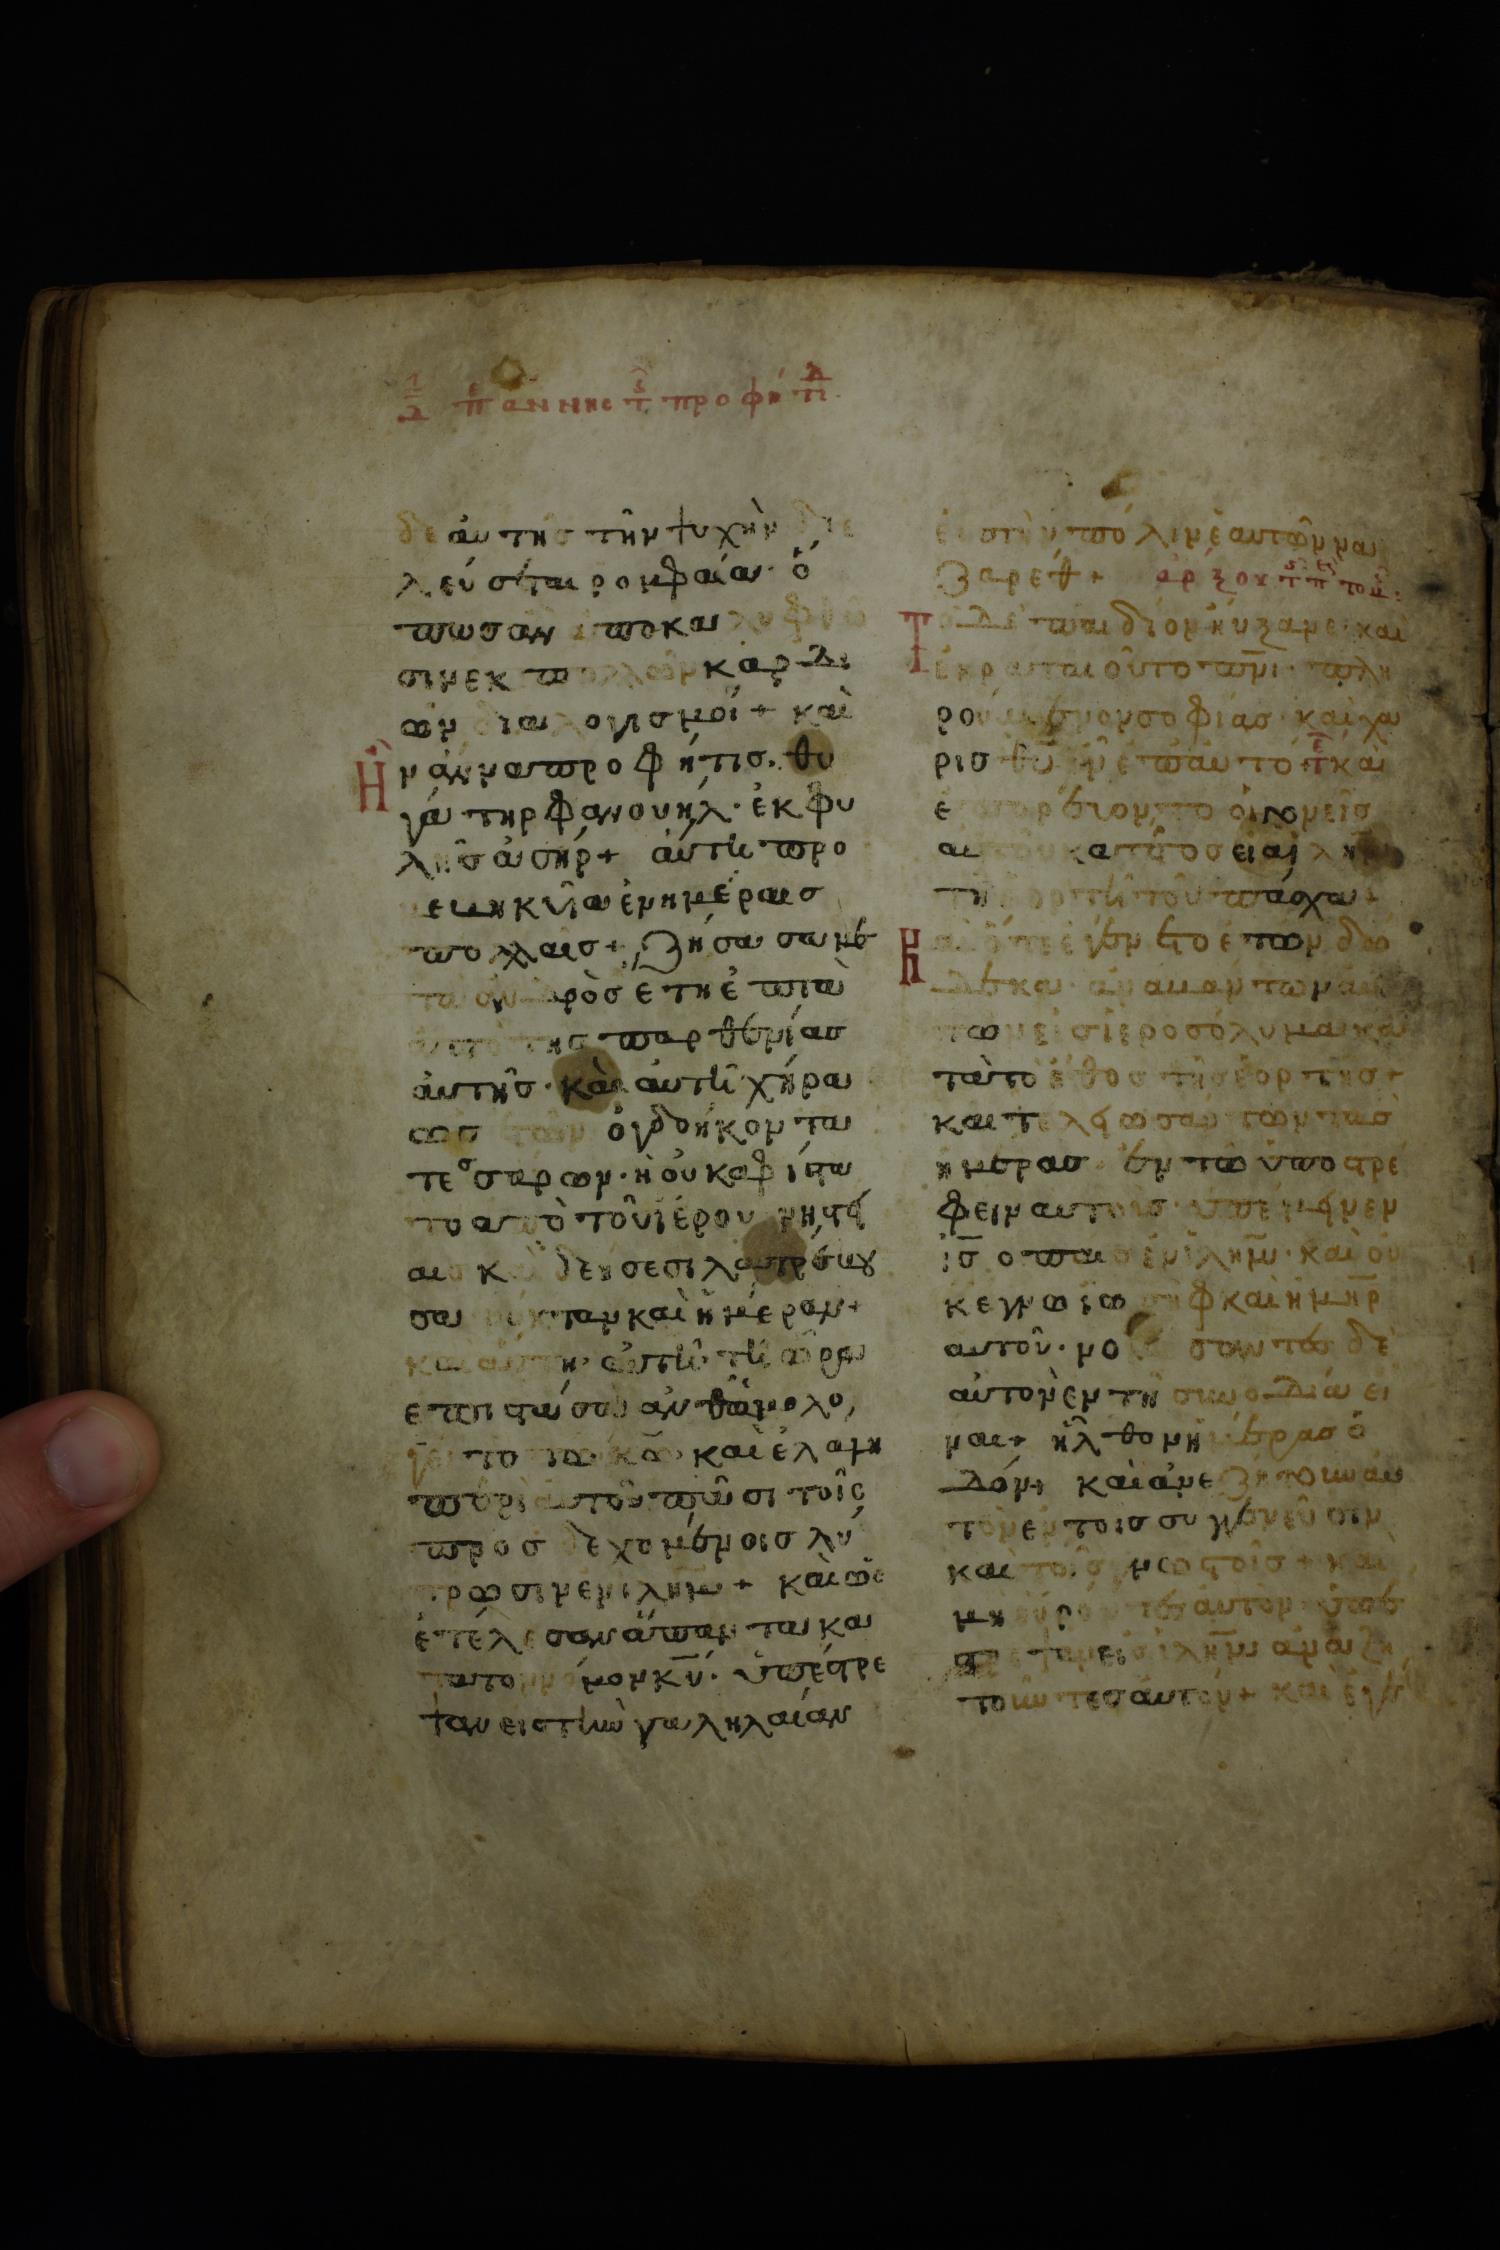 δ π αννης τ προφη τι
δε ἀυτης τὴν ψυχὴν διε
λεύσεται ρομφαία· ὅ
πωσαν ἀποκαλυφθῶ
σιν εκ πολλῶν καρδι
ῶν διαλογισμοί + καὶ
Ἦν ἄννα προφήτις. θυ
γάτηρ φανουήλ· ἐκ φυ
λῆς ἀσήρ + ἁύτη προ
βεβηκυῖα ἐν ημέραις
πολλαῖς +, Ζήσασα με
τα ἀνδρὸς ἔτη ἑπτὰ
ἀπὸ της παρθενίας
ἀυτῆς· καὶ ἀυτὴ χήρα
ως ἐτῶν ὀγδοήκοντα
τεσσάρων· ἣ οὐκ αφίστα
το απὸ τοῦ ἱεροῦ νηστεί
αις καὶ δεήσεσι λατρέυου
σα νύκταν καὶ ἡμέραν +
και ἁύτη· ἀυτῆ τῆ ὥρα
επιστᾶσα ἀνθωμολο
γεῖτο τω κω καὶ ἐλάλη
περὶ ἀυτοῦ πᾶσι τοῖς
προσδεχομένοις λύ
τρωσιν ἐν ιλημ + καὶ ὡς
ἐτέλεσαν ἅπαντα κα
τα τον νόμον κυ· ὑπέστρε
ψαν εις τὴν γαληλαίαν
εις τὴν πόλιν ἑαυτῶν να
ζαρέθ + αρξου τ π του
Τὸ δὲ παιδίον ηύξανε· και
ἐκραταιοῦτο πνι· πλη
ρούμενον σοφίας· καὶ χά
ρις θυ ἦν ἐπ ἀυτό τ και
επορέυοντο ὁι γονεῖς
αυτοῦ κατ ἔτος εἰς ιλημ
τῆ ἑορτῆ τοῦ πάσχα +
Καὶ ὅτε ἐγένετο ἐτῶν δώ
δεκα· ἀναβάντων ἀυ
τῶν εἰς ἱεροσόλυμα κα
τὰ τὸ ἔθος τῆς ἑορτῆς +
και τελειωσάντων τὰς
ημέρας· ἐν τῶ ὑποστρέ
φειν αυτους· ὑπέμεινεν
ις ο παις ἐν ιλημ· καὶ οὐ
κ εγνω ιωσὴφ καὶ ἡ μηρ
αυτοῦ· νομίσαντες δὲ
ἀυτὸν ἐν τῆ συνοδία εἶ
ναι + ἦλθον ημέρας ὁ
δόν + καὶ ἀνεζήτουν ἀυ
τὸν εν τοις συγγενεῦσιν
καὶ τοῖς γνωστοῖς + καὶ
μὴ εὑρόντες αυτον· ὑπέ
στρεψαν εἰς ιλημ αναζη
τοῦντες ἀυτόν + και ἐγέ